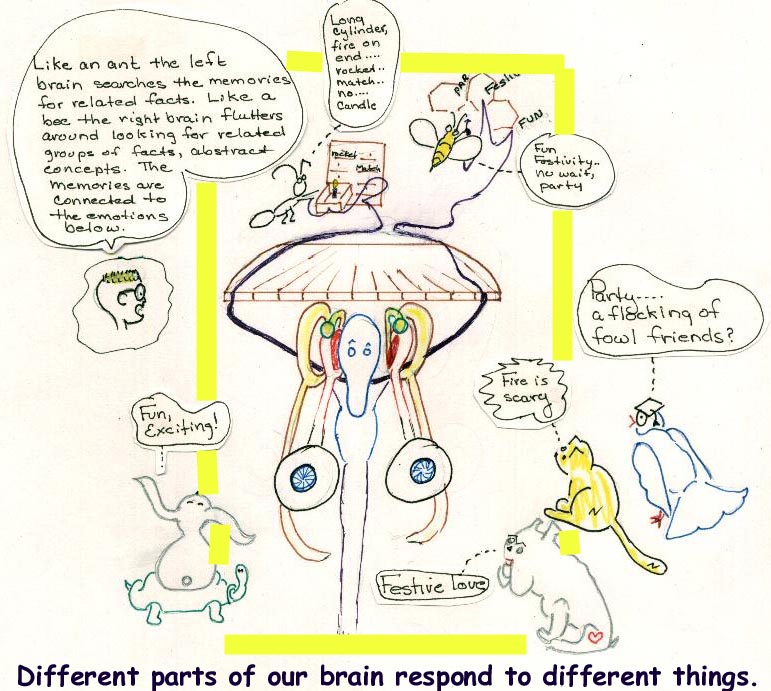 Like an ant the left
brain searches the memories
for related facts. Like a
bee the right brain flutters
around looking for related
groups of facts, abstract
concepts. The
memories are
connected to
the emotions
below.
Long
cylinder,
fire on
end....
rocket..
match..
no....
Candle
rocket
Match
PAR
Festi
FUN
Fun
Festivity..
no wait,
party
Party----
a flocking of
fowl friends?
Fire is
scary
Fun,
Exciting!
Festive love
Different parts of our brain respond to different things.